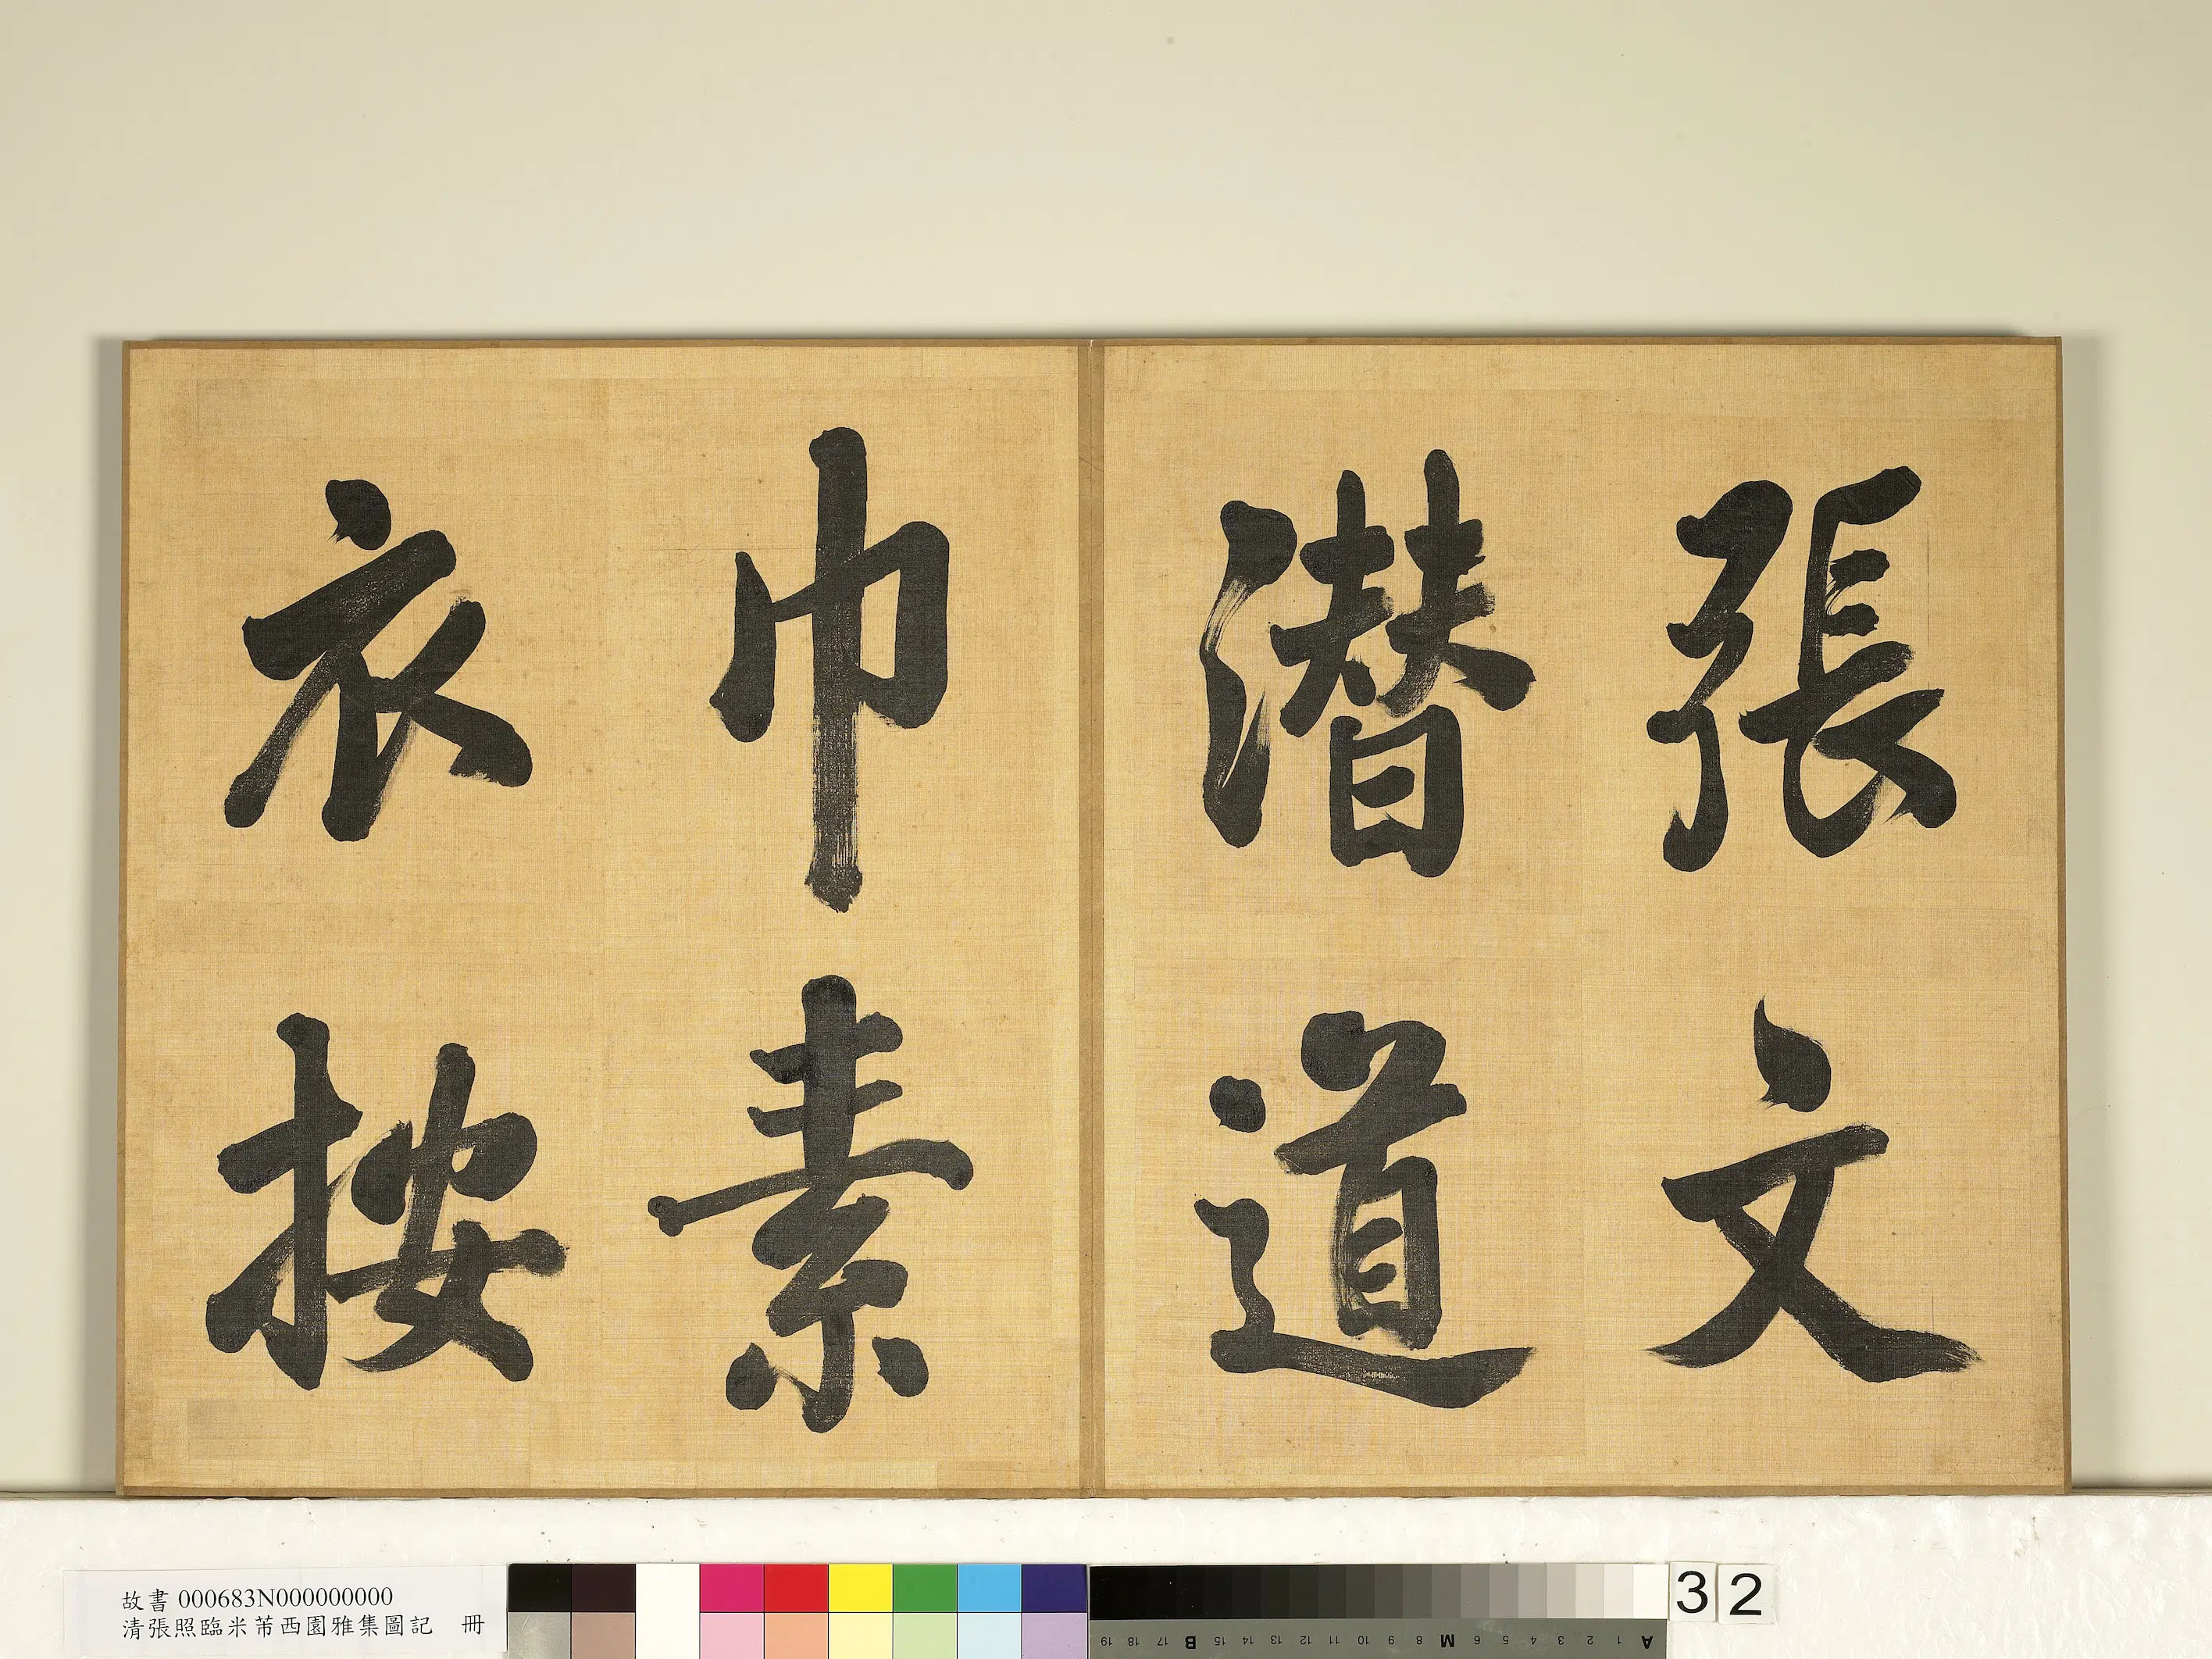 張文
潛道
巾素
衣按
故書000683N000000000
清張照臨米芾西園雅集圖記 冊
32
19 18 17 B 15 14 13 12 11 10 9 8 M 6 5 4 3 2 1 A